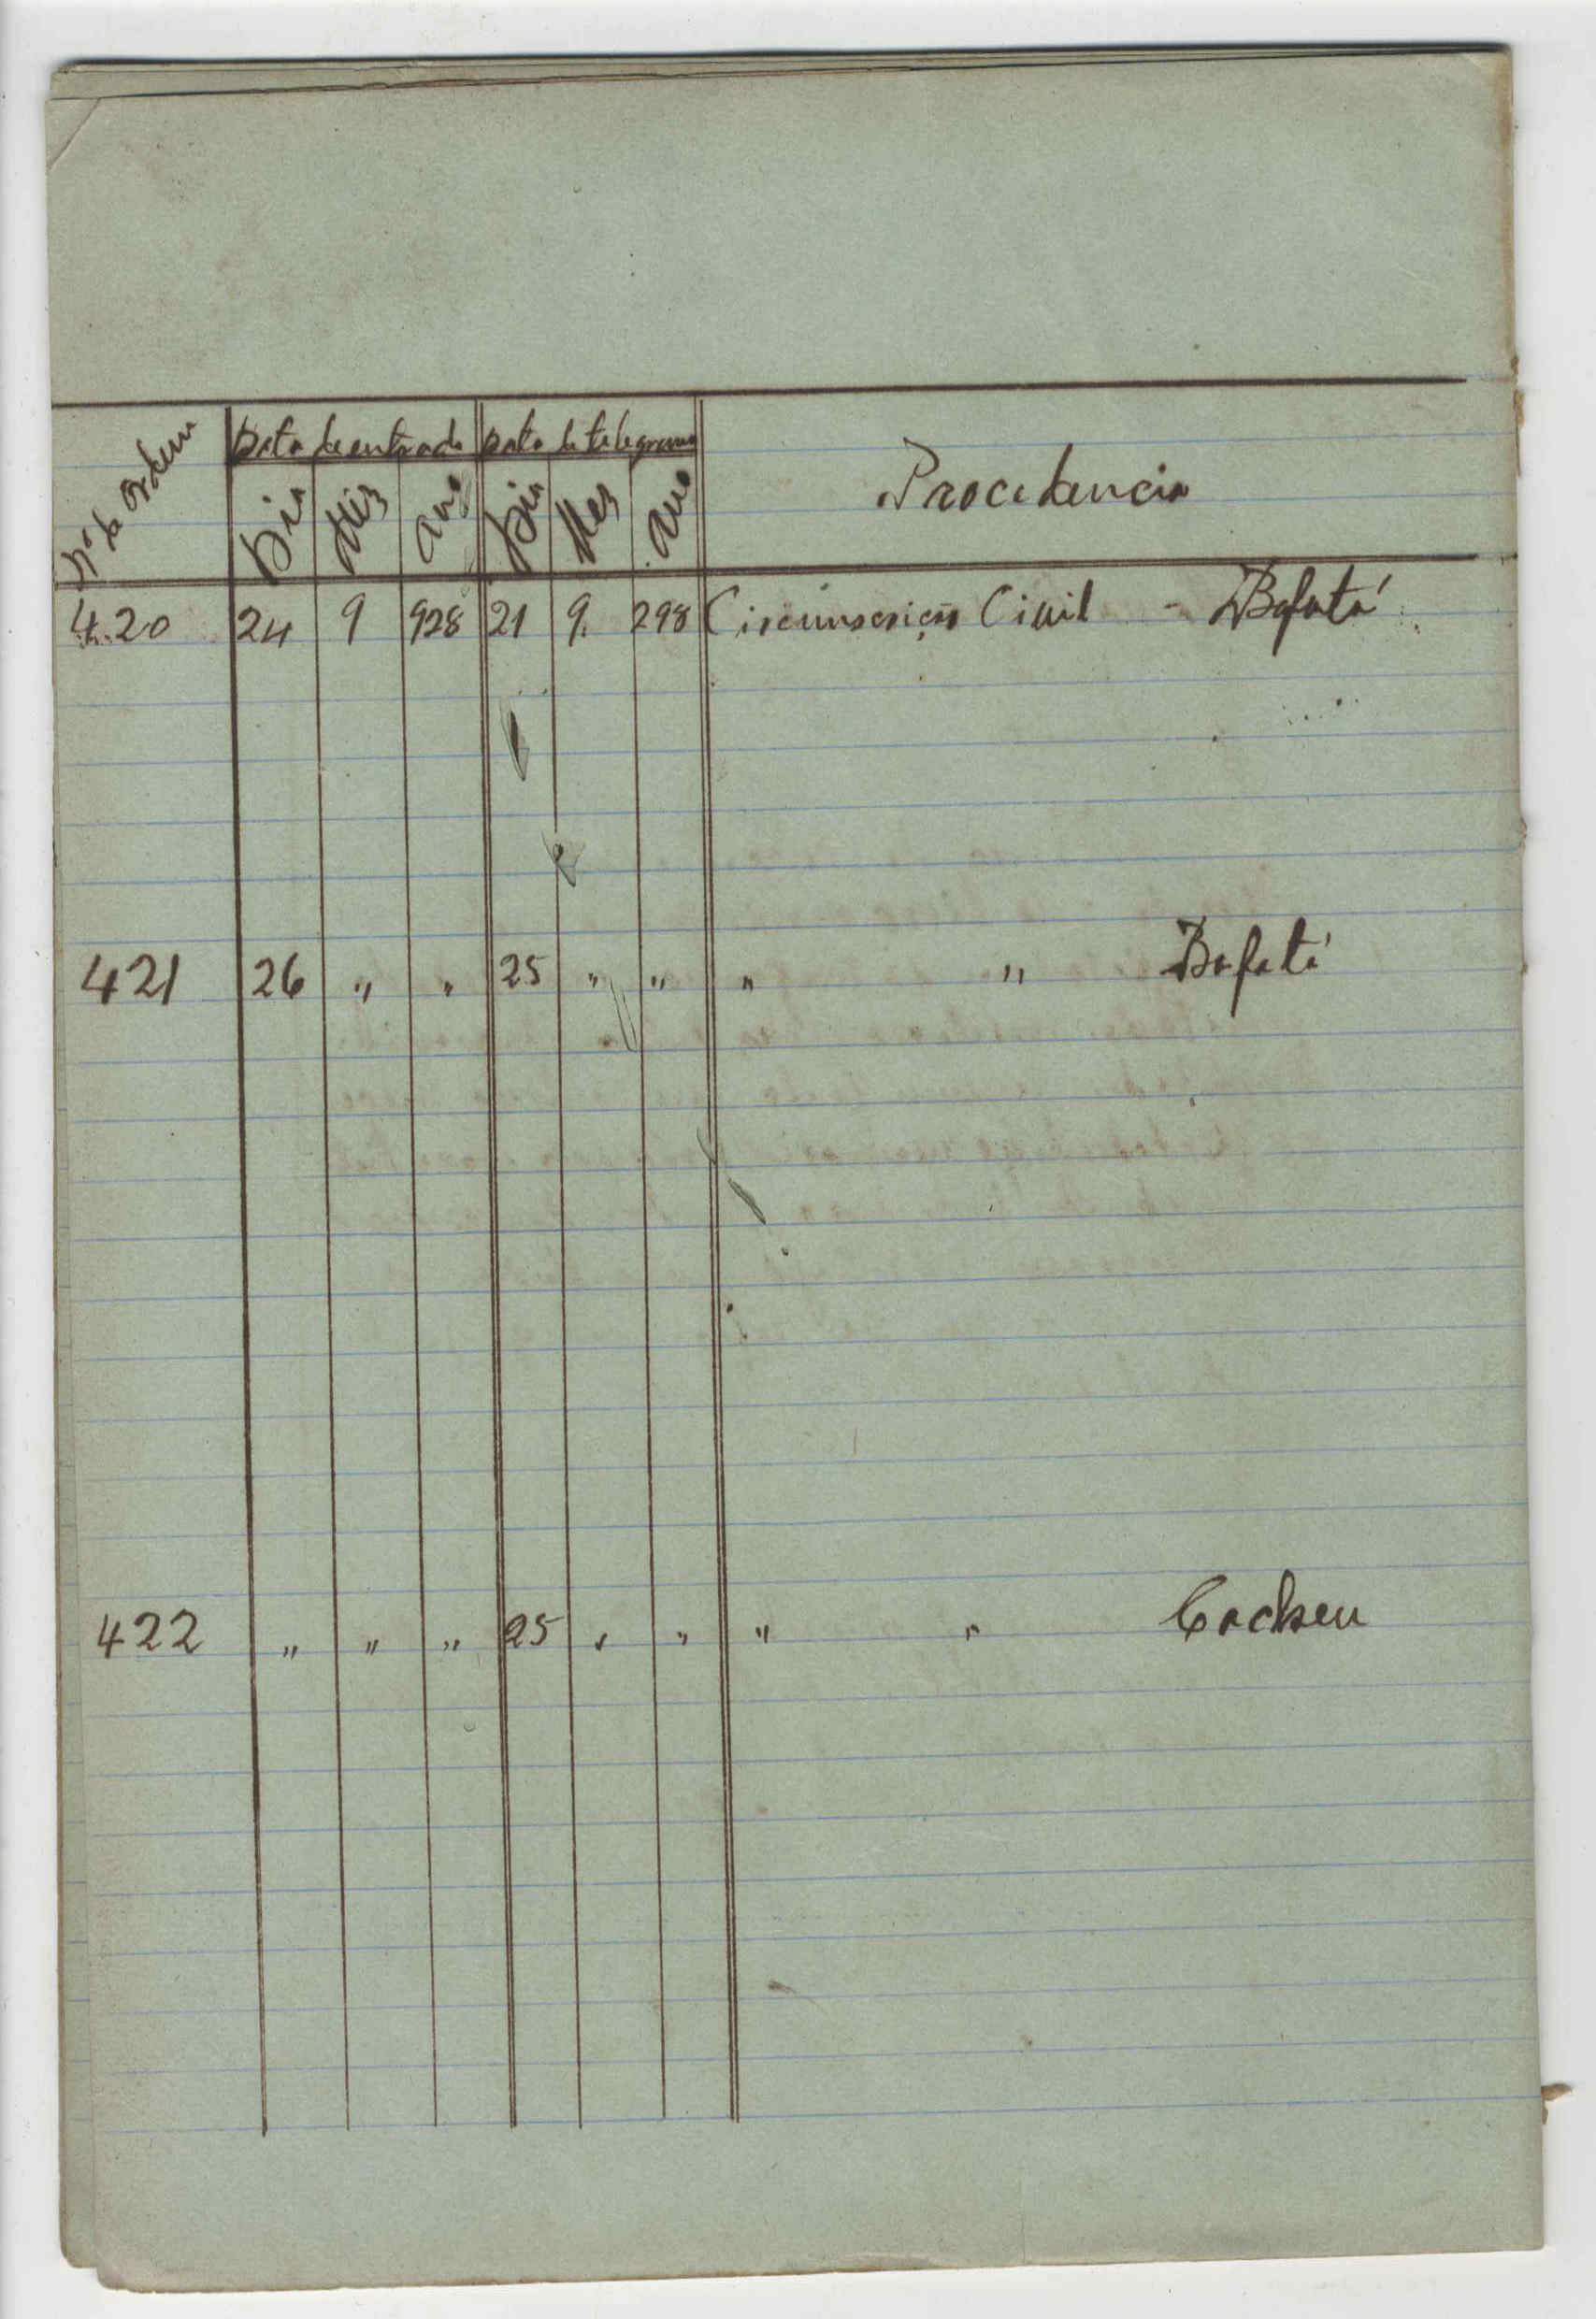 Nº de Ordem Data de entrada Data de telegrama Procedencia
Dia Mês Ano Dia Mes Ano
420 24 9 928 21 9. 298 Circunscrição Civil - Bafatá
421 26 " " 25 " " " " Bafatá
422 " " " 25 " " " " Cacheu